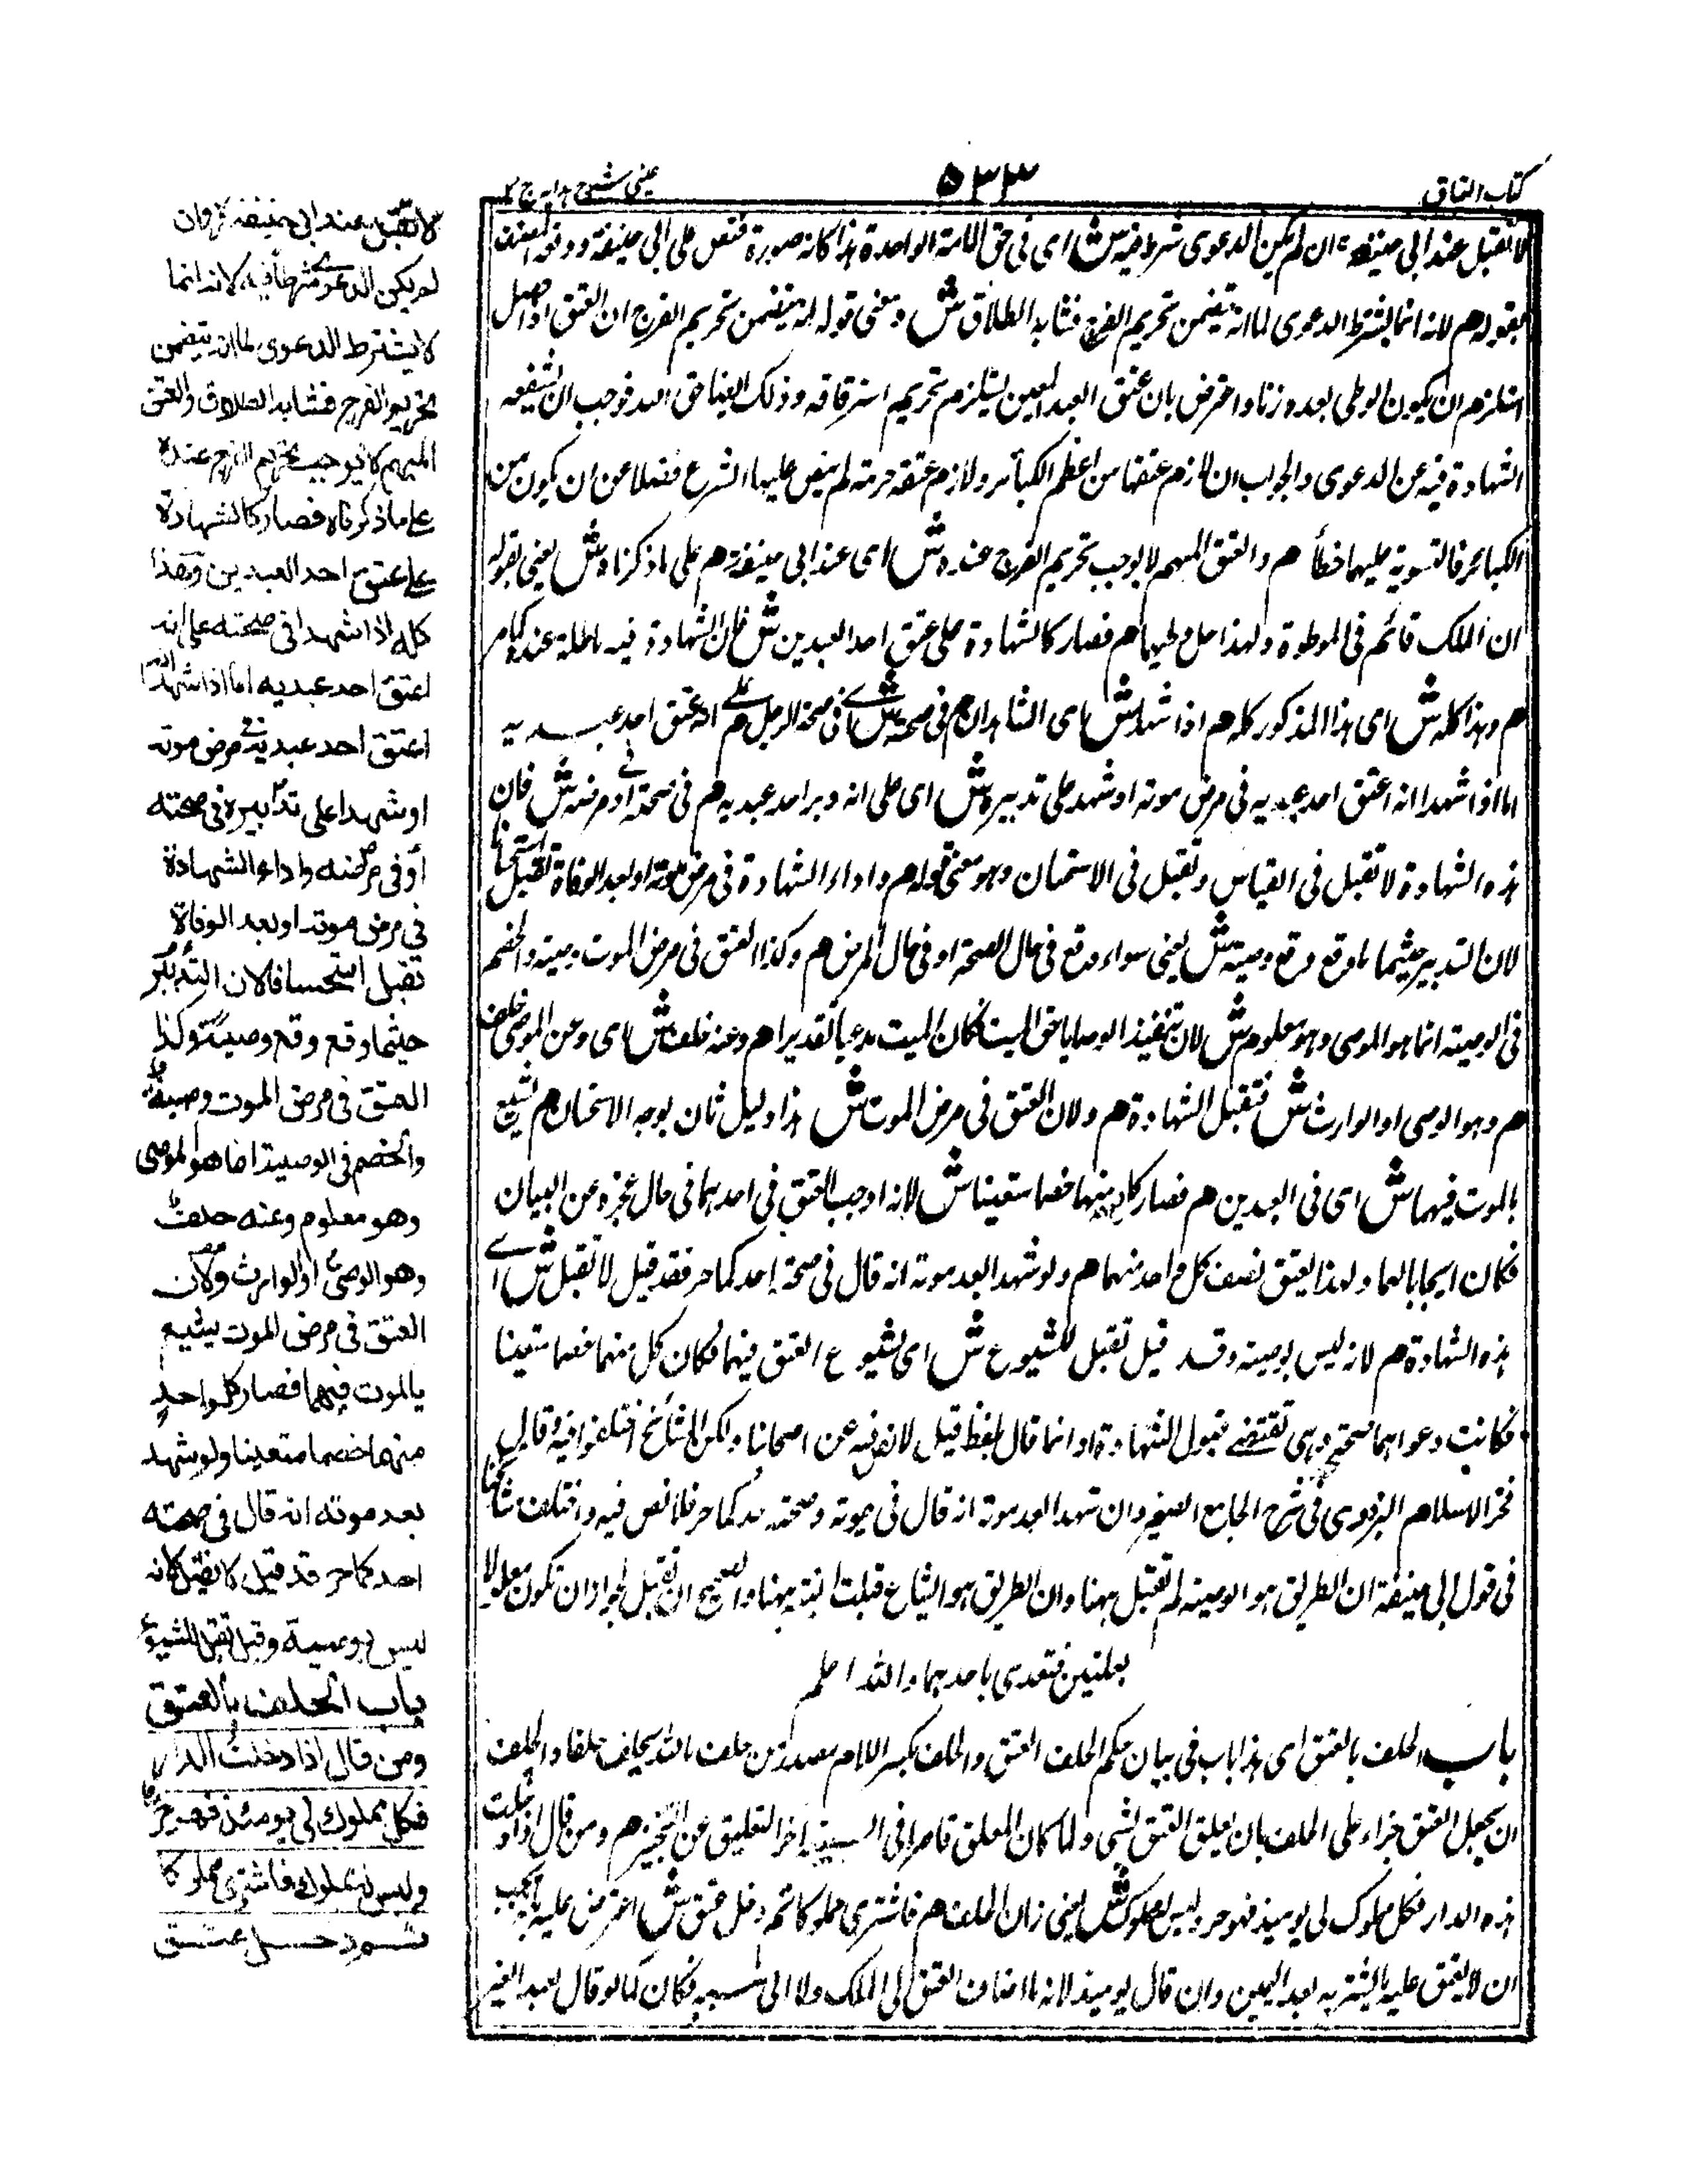 كتاب العتاق
٥٣٣
عينى شرح هدايه ج ٢
لا تقبل عند ابى حنيفة ان لم يكن الدعوى شرط فيه ش اى فى حق الامة الواحدة هذا كانه صورة نقص على ابى حنيفة ودفعه المصنف
بقوله هم لانه انما لا يشترط الدعوى لما انه يتضمن تحريم الفرج فشابه الطلاق ش ومعنى قوله انه يتضمن تحريم الفرج ان العتق اذا حصل
استلزم ان يكون الوطى بعده زنا واعترض بان عتق العبد المعين يستلزم تحريم استرقاقه وذلك ايضا حق الله فوجب ان
الشهادة فيه عن الدعوى والجواب ان لازم عتقها من اعظم الكبائر ولازم عتقه حرمة لم ينص عليها الشرع فضلا عن ان يكون من
الكبائر فالتسوية عليهما خطأ هم والعتق المبهم لا يوجب تحريم الفرج عنده ش اى عند ابى حنيفة هم على ما ذكرناه ش يعنى بقوله
ان الملك قائم فى الموطوءة ولهذا حل وطيهما هم فصار كالشهادة على عتق احد العبدين ش فان الشهادة فيه باطلة عنده كما مر
هم وهذا كله ش اى هذا المذكور كله هم اذا شهدا ش اى الشاهدان هم فى صحته ش اى فى صحة الرجل هم على انه عتق احد عبديه
اما اذا شهدا انه اعتق احد عبديه فى مرض موته او شهد على تدبيره ش اى على انه دبر احد عبديه هم فى صحته او فى مرضه ش فان
هذه الشهادة لا تقبل فى القياس وتقبل فى الاستحسان وهو معنى قوله هم واداء الشهادة فى مرض موته او بعد الوفاة تقبل استحسانا
لان التدبير حيثما وقع وقع وصية ش يعنى سواء وقع فى حال الصحة او فى حال المرض هم وكذا العتق فى مرض الموت وصية والخصم
فى الوصية انما هو الموصى وهو معلوم ش لان تنفيذ الوصايا حق الميت فكان الميت مدعيا تقديرا هم وعنه خلف ش اى وعن الموصى خلف
هم وهو الوصى او الوارث ش فتقبل الشهادة هم ولان العتق فى مرض الموت ش هذا دليل ثان لوجه الاستحسان هم يشيع
بالموت فيهما ش اى فى العبدين هم فصار كل واحد منهما خصما متعينا ش لانه اوجب العتق فى احدهما فى حال عجزه عن البيان
فكان ايجابا لهما ولهذا يعتق نصف كل واحد منهما هم ولو شهدا بعد موته انه قال فى صحة احدكما حر فقد قيل لا تقبل ش اى
هذه الشهادة هم لانه ليس بوصية وقد قيل تقبل للشيوع ش اى لشيوع العتق فيهما فكان كل منهما خصما متعينا
فكانت دعواهما صحيحة وهى تقتضى قبول الشهادة وانما قال بلفظ قيل لانه لا نص فيه عن اصحابنا ولكن المشائخ اختلفوا فيه وقال
فخر الاسلام البزدوى فى شرح الجامع الصغير وان شهدا بعد موته انه قال فى حيوته وصحته احدكما حر فلا نص فيه واختلف مشائخنا
فى قول ابى حنيفة ان الطريق هو الوصية لم تقبل ههنا وان الطريق هو الشياع قبلت البينة ههنا والصحيح ان تقبل لجواز ان تكون معلولا
بعلتين فتعدى باحدهما والله اعلم
باب الحلف بالعتق اى هذا باب فى بيان حكم الحلف العتق والحلف بكسر اللام مصدر من حلف بالله يحلف حلفا والحلف
ان يجعل العتق جزاء على الحلف بان يعلق العتق بشى ولما كان المعلق قاصرا فى السببية اخر التعليق عن التنجيز هم ومن قال اذا دخلت
هذه الدار فكل مملوك لى يومئذ فهو حر وليس له مملوك ش يعنى زمان الحلف هم فاشترى مملوكا ثم دخل عتق ش اعترض عليه بانه يجب
ان لا يعتق عليه ما يشتريه بعد اليمين وان قال يومئذ لانه ما اضاف العتق الى الملك ولا الى سببه فكان كما لو قال لعبد الغير
لا تقبل عند ابى حنيفة وان
لم يكن الدعوى شرطا فيه لانه انما
لا يشترط الدعوى لما انه يتضمن
تحريم الفرج فشابه الطلاق والعتق
المبهم لا يوجب تحريم الفرج عنده
على ما ذكرناه فصار كالشهادة
على عتق احد العبدين وهذا
كله اذا شهدا فى صحته على انه
اعتق احد عبديه اما اذا شهدا انه
اعتق احد عبديه فى مرض موته
او شهدا على تدبيره فى صحته
او فى مرضه واداء الشهادة
فى مرض موته او بعد الوفاة
تقبل استحسانا لان التدبير
حيثما وقع وقع وصية وكذا
العتق فى مرض الموت وصية
والخصم فى الوصية انما هو الموصى
وهو معلوم وعنه خلف
وهو الوصى او الوارث ولان
العتق فى مرض الموت يشيع
بالموت فيهما فصار كل واحد
منهما خصما متعينا ولو شهد
بعد موته انه قال فى صحته
احدكما حر قد قيل لا تقبل لانه
ليس بوصية وقيل تقبل للشيوع
باب الحلف بالعتق
ومن قال اذا دخلت الدار
فكل مملوك لى يومئذ فهو حر
وليس له مملوك فاشترى مملوكا
ثم دخل عتق